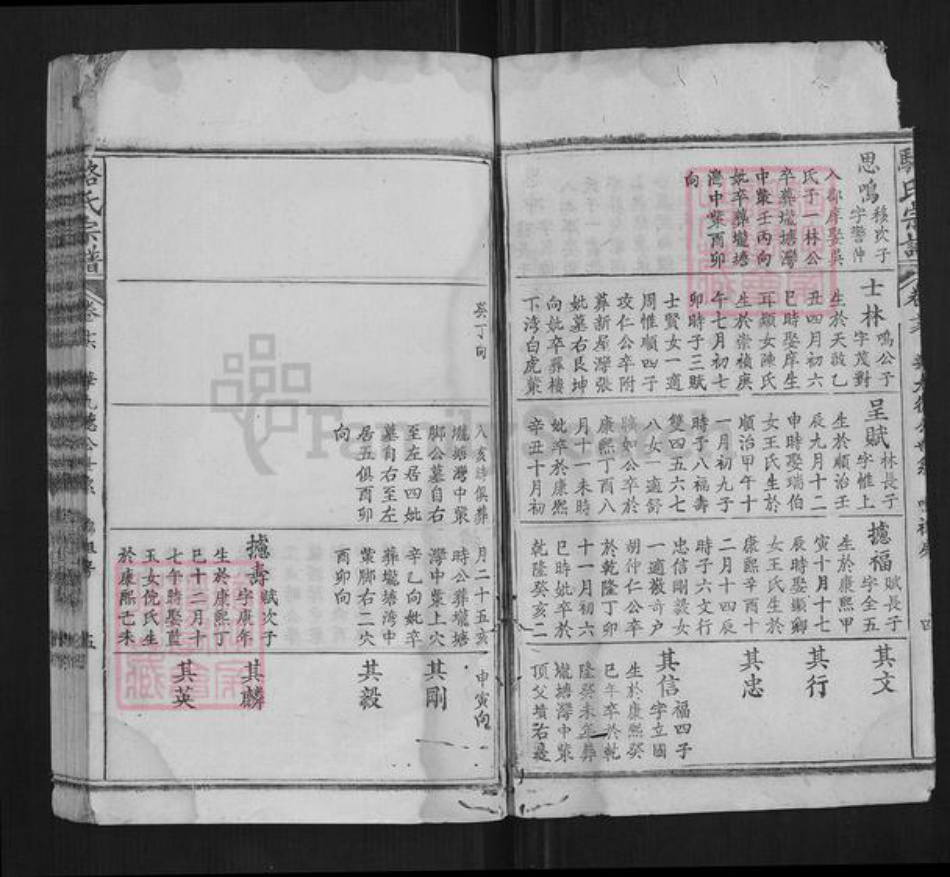 駱氏宗譜
思鳴 穆次子
字響仲
入郡庠娶吳
氏子一林公
卒葬壠塘灣
中棠壬丙向
妣卒葬壠塘
灣中棠酉卯
向
士林 鳴公子
字茂對
生於天啟乙
丑四月初六
巳時娶庠生
耳顯女陳氏
生於崇禎庚
午七月初七
卯時子三賦
士賢女一適
周惟順四子
攻仁公卒附
葬新屋灣張
妣墓右艮坤
向妣卒葬樓
下湾白虎棠
癸丁向
呈賦 林長子
字惟上
生於順治壬
辰九月十二
申時娶瑞伯
女王氏生於
順治甲午十
一月初九子
時子八福壽
雙四五六七
八女一適舒
驥如公卒於
康熙丁酉八
月十一未時
妣卒於康熙
辛丑十月初
八亥時俱葬
壠塘灣中棠
脚公墓自右
至左居四妣
墓自右至左
居五俱酉卯
向
摅福 賦長子
字全五
生於康熙甲
寅十月十七
辰時娶顯卿
女王氏生於
康熙辛酉十
二月十四辰
時子六文行
忠信剛毅女
一適敖奇户
胡仲仁公卒
於乾隆丁卯
十一月初六
巳時妣卒於
乾隆癸亥二
月二十五亥
時公葬壠塘
灣中棠上穴
辛乙向妣卒
葬壠塘湾中
棠脚右二穴
酉卯向
摅壽 賦次子
字庚年
生於康熙丁
巳十二月十
七午時娶藍
玉女倪氏生
於康熙己未
其文
其行
其忠
其信 福四子
字立國
生於康熙癸
巳年卒於乾
隆癸未年葬
壠塘灣中棠
頂父墳右邊
申寅向
其剛
其毅
其麟
其英
駱氏宗譜